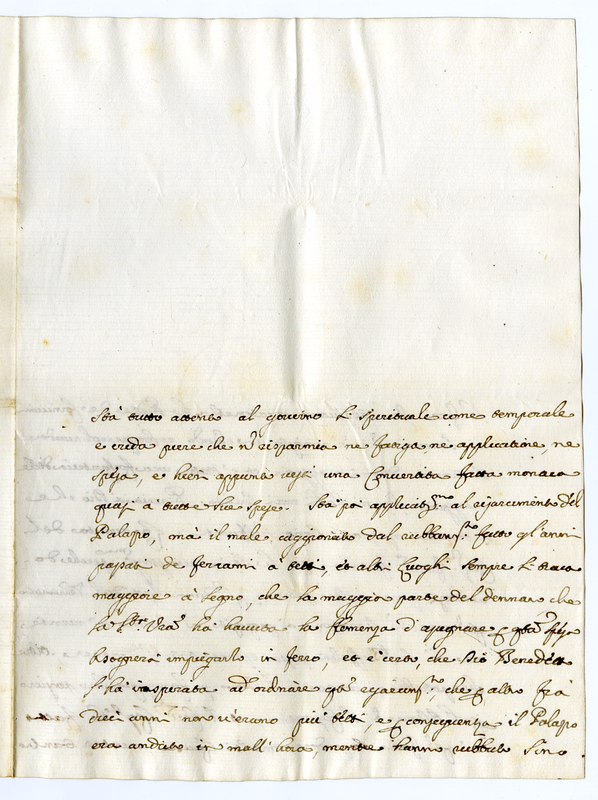 Stà tutto attento al governo sì spirituale come temporale
e creda pure che nō risparmia ne fatiga, ne applicatione, ne
spesa, e hieri appunto vestì una Convertita fatta monaca
quasi à tutte sue spese. Sta poi applicatis.mo al risarcimento del
Palazzo, mà il male caggionato dal rubbam.to fatto gl'anni
passati de ferrami à tetti, et altri luoghi sempre si trova
maggiore a segno, che la maggior parte del dennaro che
la S.tà V.ra hà havuta la clemenza d'assegnare
bisognerà impiegarlo in ferro, et è certo, che Dio Benedetto
l'hà inspirata ad ordinare che altro frà
dieci anni non v'erano più tetti, e conseguenza il Palazzo
era andato in mall'hora, mentre hanno rubbato sino